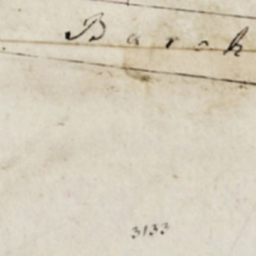 Barok
3133